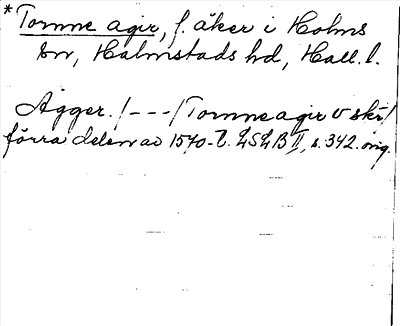 *Tomme agir, f. åker i Holms
sn, Halmstads hd, Hall. l.
Agger. /---/ Tomme agir v skr/
förra delen av 1570-t. LSLB II, s. 342. orig.